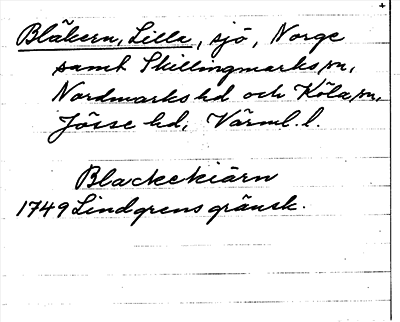 Blåkern, Lilla, sjö, Norge
samt Skillingmarks sn,
Nordmarks hd och Köla sn,
Jösse hd, Värml. l.
Blackekiärn
1749 Lindgrens gränsk.